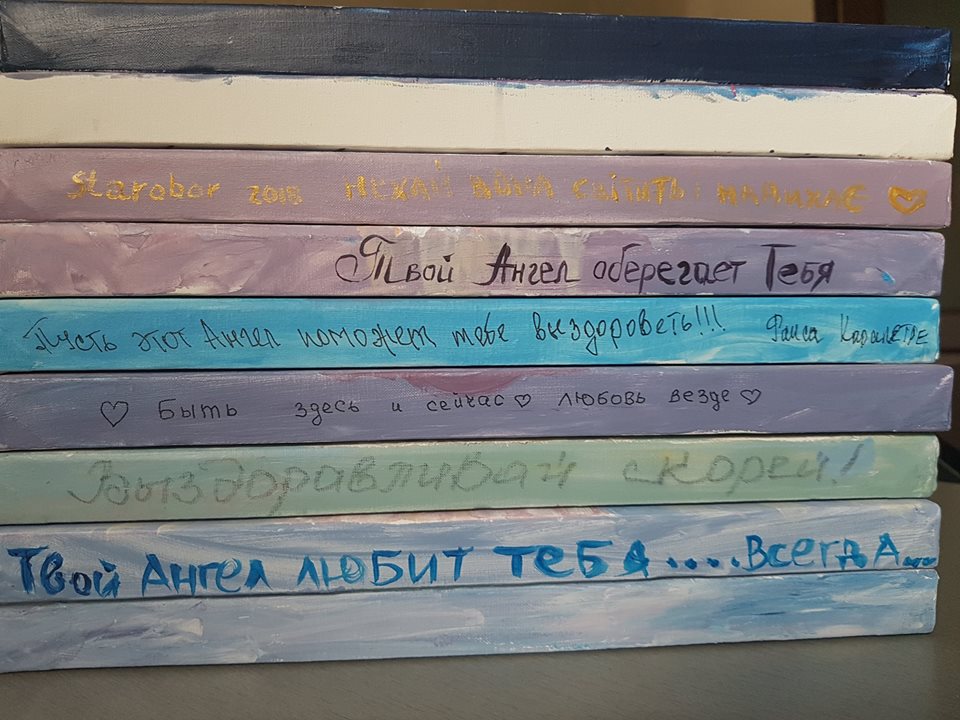 Starobor 2018 НЕХАЙ ВОНА СВІТИТЬ І НАДИХАЄ
Твой Ангел оберегает Тебя
Пусть этот Ангел поможет тебе выздороветь!!! Раиса
Быть здесь и сейчас любовь везде
Выздоравливай скорей!
Твой Ангел ЛЮБИТ ТЕБЯ.....ВсегдА...